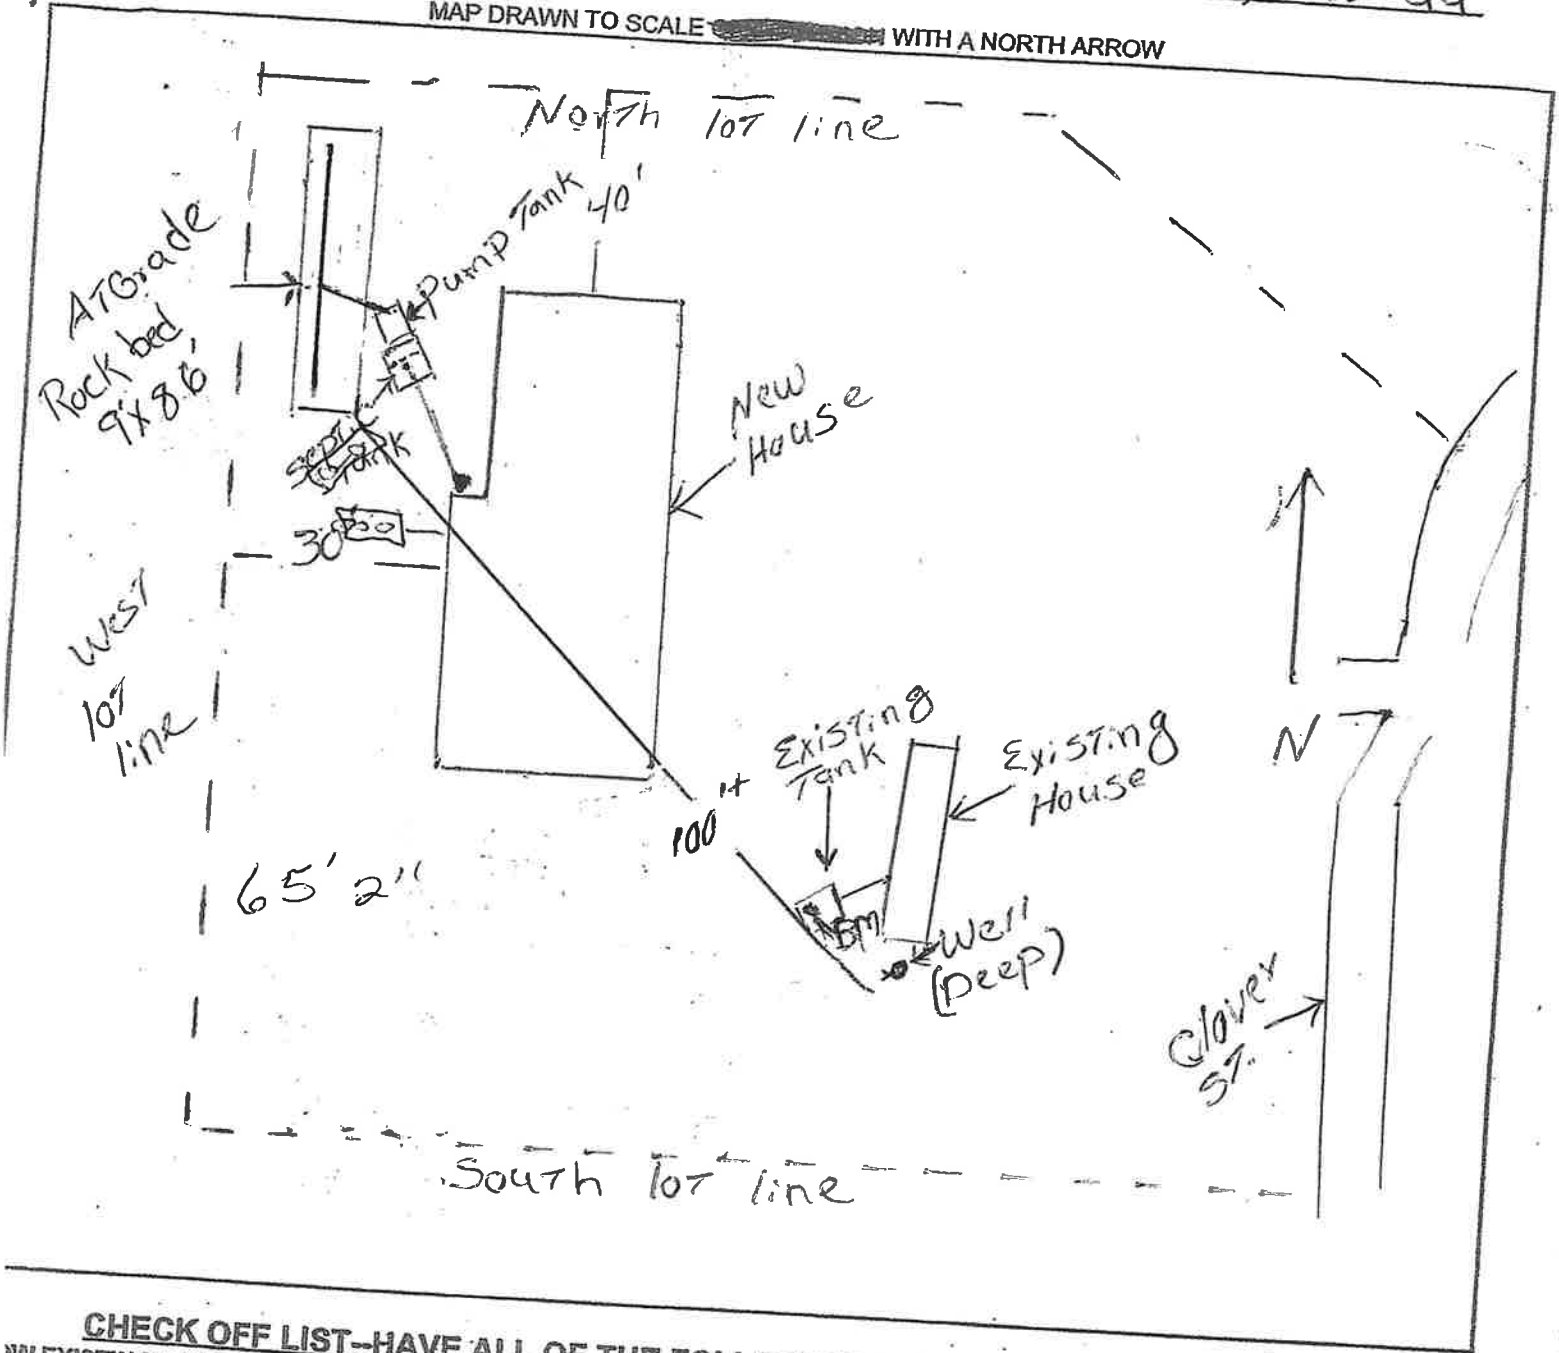 MAP DRAWN TO SCALE WITH A NORTH ARROW
North lot line
40'
Pump Tank
AT Grade
Rock bed
9'x86'
Septic
Tank
New
House
30
West
lot
line
Existing
Tank
Existing
House
N
100'+
65' 2"
BM
Well
(Deep)
Clover
ST.
South lot line
CHECK OFF LIST--HAVE ALL OF THE